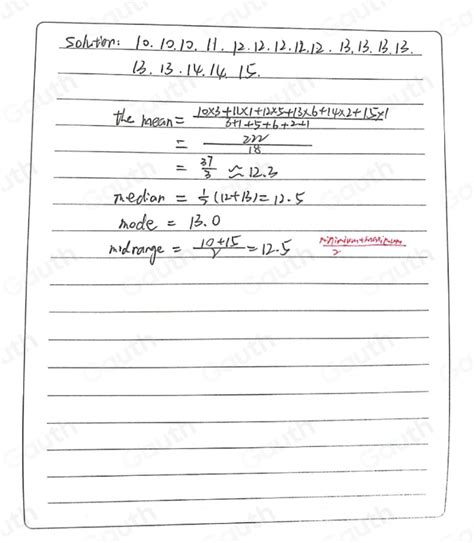 Solution: 10. 10. 10. 11. 12. 12. 12. 12. 12. 13. 13. 13. 13.
13. 13. 14. 14. 15.
the mean = 10×3+11×1+12×5+13×6+14×2+15×1
3+1+5+6+2+1
= 222
18
= 37/3 ≈ 12.3
median = 1/2 (12+13) = 12.5
mode = 13.0
midrange = 10+15/2 = 12.5
minimum+maximum
2
Gauth